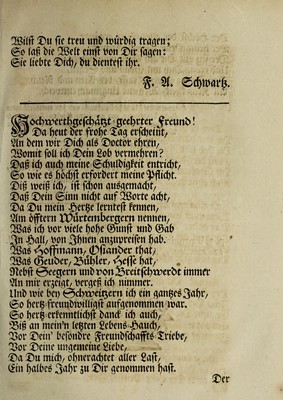 Wilst Du sie treu und würdig tragen;
So laß die Welt einst von Dir sagen:
Sie liebte Dich, du dientest ihr.
F. A. Schwartz.
Hochwerthgeschätzt-geehrter Freund!
Da heut der frohe Tag erscheint,
An dem wir Dich als Doctor ehren,
Womit soll ich Dein Lob vermehren?
Daß ich auch meine Schuldigkeit entricht,
So wie es höchst erfordert meine Pflicht.
Diß weiß ich, ist schon ausgemacht,
Daß Dein Sinn nicht auf Worte acht,
Da Du mein Hertze lerntest kennen,
Am öfftern Würtembergern nennen,
Was ich vor viele hohe Gunst und Gab
In Hall, von Jhnen anzupreisen hab.
Was Hoffmann, Osiander that,
Was Geuder, Bühler, Hesse hat,
Nebst Seegern und von Breitschwerdt immer
An mir erzeigt, vergeß ich nimmer.
Und wie bey Schweitzern ich ein gantzes Jahr,
So hertz-freundwilligst aufgenommen war.
So hertz-erkenntlichst danck ich auch,
Biß an mein'n letzten Lebens-Hauch,
Vor Dein' besondre Freundschaffts-Triebe,
Vor Deine ungemeine Liebe,
Da Du mich, ohnerachtet aller Last,
Ein halbes Jahr zu Dir genommen hast.
Der